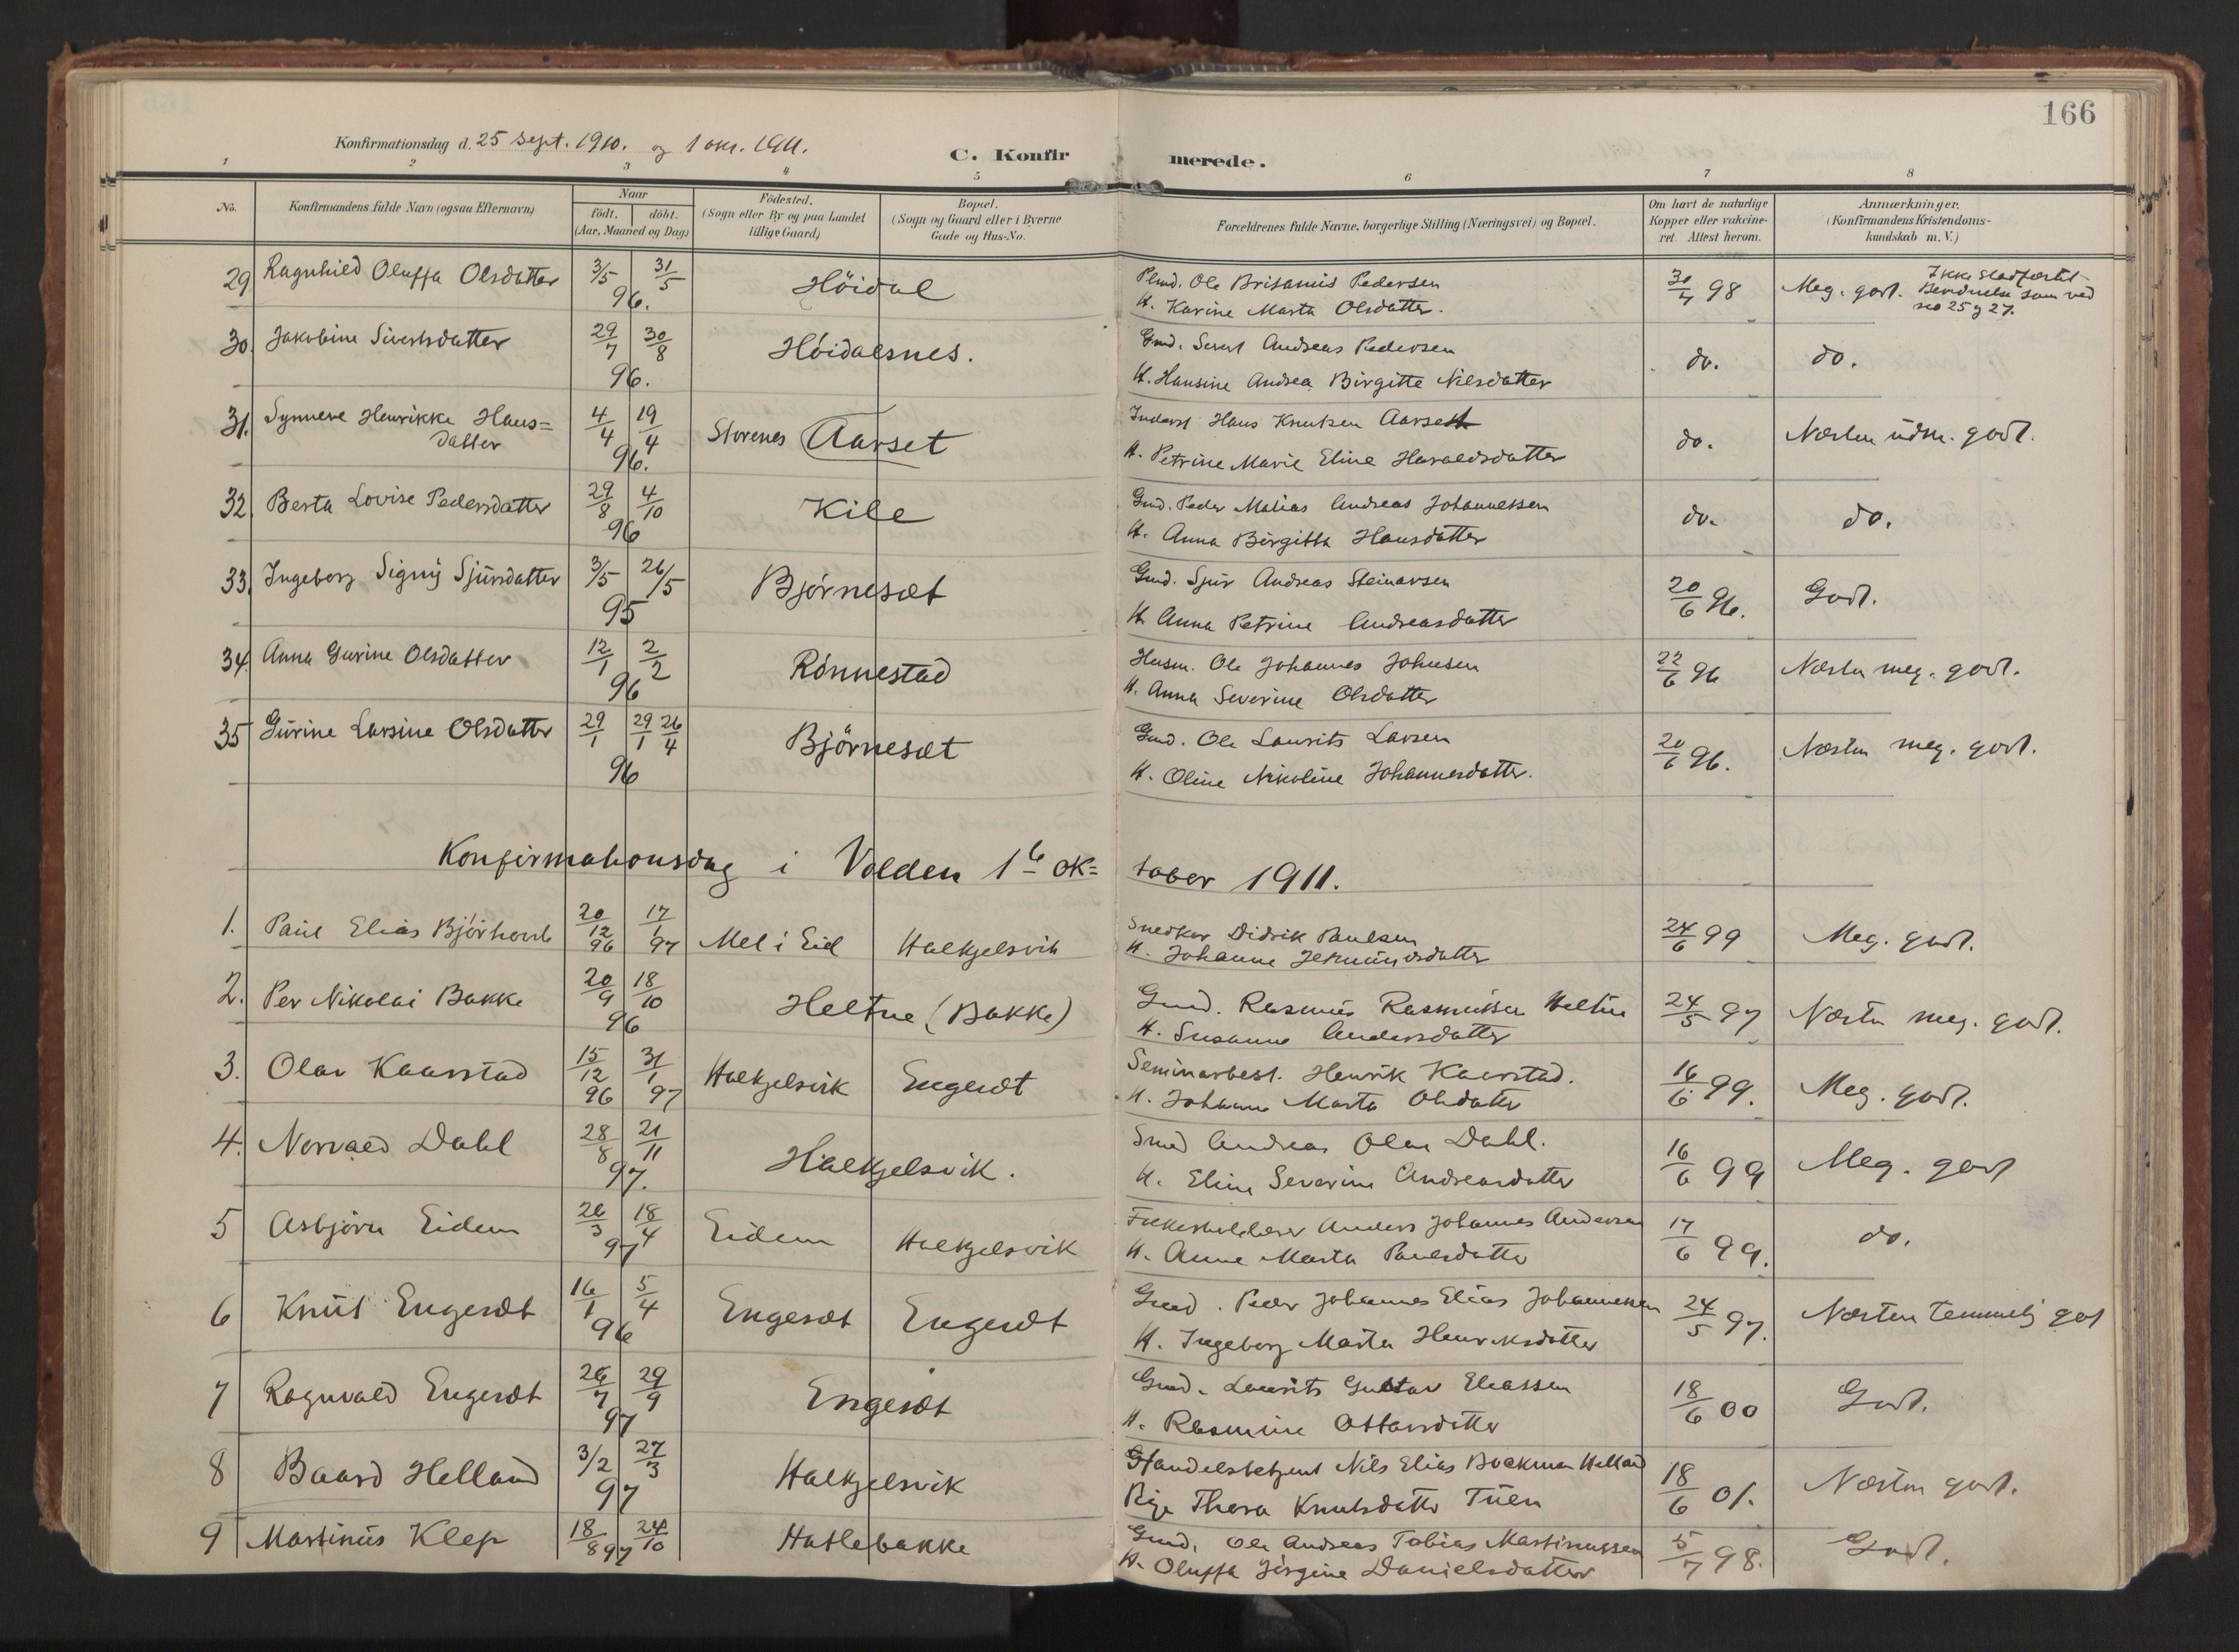 166
Konfirmationsdag d. 25 Sept. 1910. og 1 okt. 1911.
C. Konfirmerede.
1 2 3 4 5 6 7 8
No.
Konfirmandens fulde Navn (ogsaa Efternavn)
Naar
födt. döbt.
(Aar, Maaned og Dag)
Födested.
(Sogn eller By og paa Landet
tillige Gaard)
Bopæl.
(Sogn og Gaard eller i Byerne
Gade og Hus-No.
Forældrenes fulde Navne, borgerlige Stilling (Næringsvei) og Bopæl.
Om havt de naturlige
Kopper eller vakcine-
ret. Attest herom.
Anmærkninger.
(Konfirmandens Kristendoms-
kundskab m. V.)
29 Ragnhild Oluffa Olsdatter 3/5 31/5 96. Höidal
Ole Brisanius Pedersen
H. Karine Marta Olsdatter.
98 Meg. godt. Ikke stadfæstet
som ved
no 25 og 27.
30. Jakobine Sivertsdatter 29/7 30/8 96. Höidalsnes.
Gmd. Sivert Andreas Pedersen
H. Hansine Andrea Birgitte Nilsdatter
do. do.
31. Synneve Henrikke Hans=
datter 4/4 19/4 96. Storenes Aarset
Inderst Hans Knutsen Aarset
H. Petrine Marie Eline Haraldsdatter
do. Næsten udm. godt.
32. Berta Lovise Pedersdatter 29/8 4/10 96 Kile
Gmd. Peder Matias Andreas Johannessen
H. Anna Birgitta Hansdatter
do. do.
33. Ingeborg Signy Sjursdatter 3/5 26/5 95 Björneset
Gmd. Sjur Andreas Steinarsen
H. Anna Petrine Andreasdatter
20/6 96. Godt.
34. Anna Gurine Olsdatter 12/1 2/2 96 Rönnestad
Husm. Ole Johannes Johnsen
H. Anna Severine Olsdatter
22/6 96 Næsten meg. godt.
35 Gurine Larsine Olsdatter 29/1 29/1 26/4 96 Björneset
Gmd. Ole Laurits Larsen
H. Oline Nikoline Johannesdatter.
20/6 96. Næsten meg. godt.
Konfirmationsdag i Volden 1ste ok=tober 1911.
1. Paul Elias 20/12 96 17/1 97 Mel i Eid Halkjelsvik
Snedker Didrik Paulsen
H. Johanne Jetmundsdatter
24/6 99 Meg. godt.
2. Per Nikolai Bakke 20/9 18/10 96 Heltne (Bakke)
Gmd. Rasmus Rasmussen Heltne
H. Susanne Andersdatter
24/5 97 Næsten meg. godt.
3. Olav Kaarstad 15/12 96 31/1 97 Halkjelsvik Engeset
Seminarbest. Henrik Kaarstad.
H. Johanne Marta Olsdatter
16/6 99. Meg. godt.
4. Norvald Dahl 28/8 21/11 97. Halkjelsvik.
Smed Andreas Olai Dahl.
H. Eline Severine Andreasdatter
16/6 99 Meg. godt
5 Asbjörn Eidem 26/3 18/4 97 Eidem Halkjelsvik
Anders Johannes Andersen
H. Anne Marta Paulsdatter
17/6 99. do.
6 Knut Engeset 16/1 5/4 96 Engeset Engeset
Gmd. Peder Johannes Elias Johannessen
H. Ingeborg Marta Henriksdatter
24/5 97. Næsten temmelig godt
7 Ragnvald Engeset 26/7 29/9 97 Engeset
Gmd. Laurits Gustav Eliassen
H. Rasmine Ottarsdatter
18/6 00 Godt.
8 Baard Helland 3/2 27/3 97 Halkjelsvik
Handelsbetjent Nils Elias Boekman Helland
Pige Thora Knutsdatter Tuen
18/6 01. Næsten godt.
9 Martinus Klep 18/8 24/10 97 Hatlebakke
Gmd. Ole Andreas Tobias Martinussen
H. Oluffa Jörgine Danielsdatter
5/7 98. Godt.